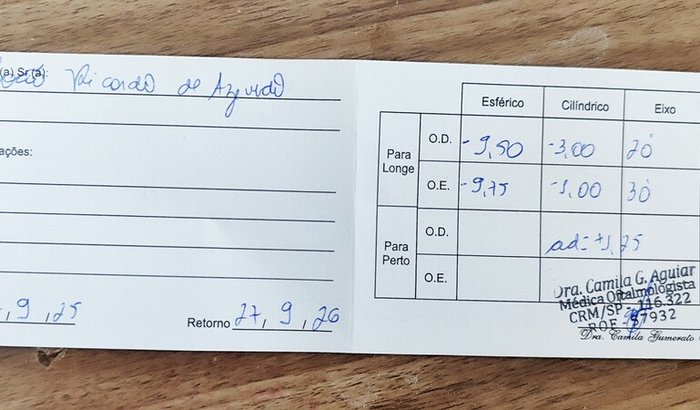 (a) Sr.(a): Ricardo de Azevedo
ações:
, 9 , 25
Retorno 27, 9 , 26
Esférico Cilíndrico Eixo
Para Longe
O.D. -9,50 -3,00 20
O.E. -9,75 -1,00 30
Para Perto
O.D. ad: +1,75
O.E.
Dra. Camila G. Aguiar
Médica Oftalmologista
CRM/SP - 116.322
57932
Dra. Camila Gumerato